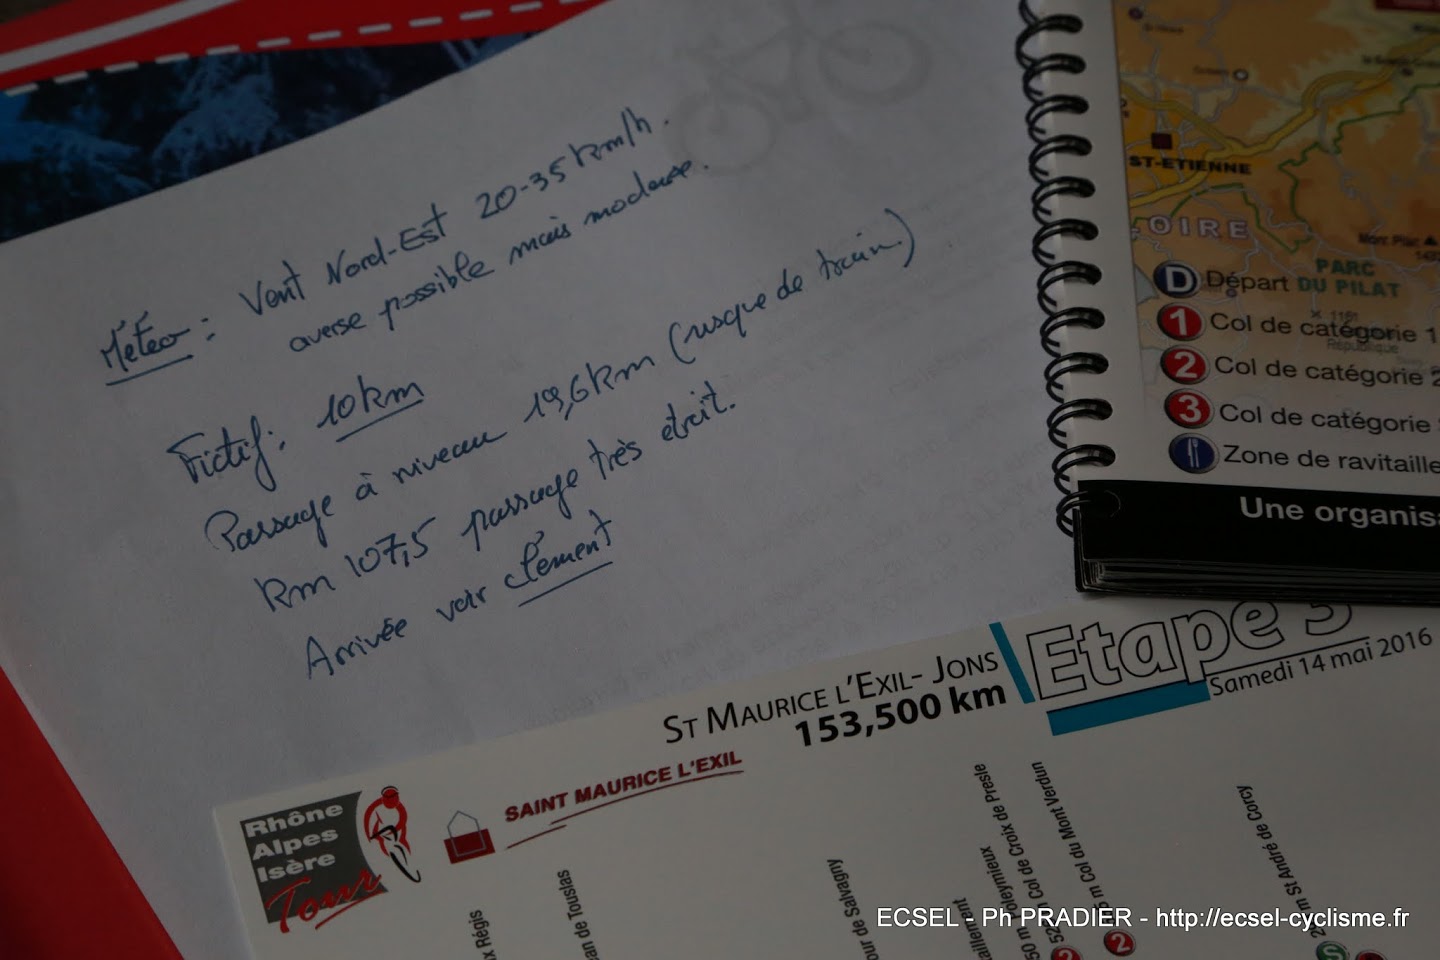 Météo : Vent Nord-Est 20-35 km/h.
averse possible mais modérée.
Fictif : 10 km
Passage à niveau 19,6 km (risque de train)
Km 107,5 passage très étroit.
Arrivée voir Clément
ST-ETIENNE
LOIRE
Mont Pilat
PARC
DU PILAT
D Départ
1 Col de catégorie 1
2 Col de catégorie 2
3 Col de catégorie
Zone de ravitaille
Une organisa
Etape 3
Samedi 14 mai 2016
ST MAURICE L'EXIL- JONS
153,500 km
SAINT MAURICE L'EXIL
Rhône
Alpes
Isère
Tour
x Régis
an de Touslas
our de Salvagny
aillement
50 m Poleymieux
52 m Col de Croix de Presle
5 m Col du Mont Verdun
2 m St André de Corcy
2
2
S
ECSEL - Ph PRADIER - http://ecsel-cyclisme.fr